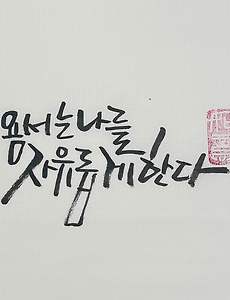 용서는 나를
자유롭게 한다